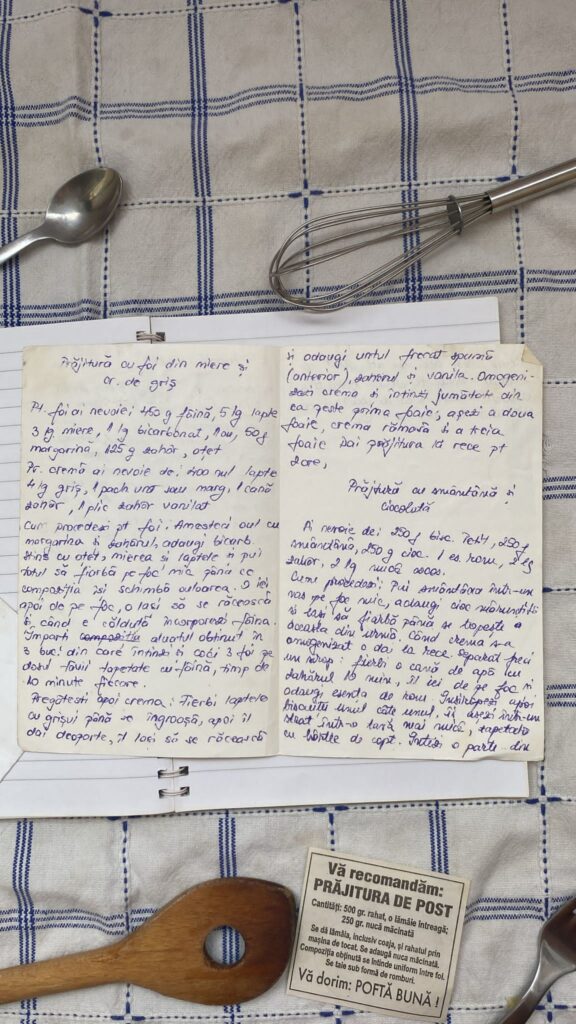 Prăjitură cu foi din miere și
cr. de griș
Pt. foi ai nevoie: 450 g făină, 5 lg lapte
3 lg miere, 1 lg bicarbonat, 1 ou, 50g
margorină, 125 g zahăr, oțet
Pr. cremă ai nevoie de: 400 ml lapte
4 lg griș, 1 pach unt sau marg, 1 cană
zahăr, 1 plic zahăr vanilat
Cum procedezi pt foi: Amesteci oul cu
margorina și zahărul, adaugi bicarb.
stins cu oțet, mierea și laptele și pui
totul să fiarbă pe foc mic până ce
compoziția își schimbă culoarea. O iei
apoi de pe foc, o lași să se răcească
și, când e călduță încorporezi făina.
Imparți aluatul obținut în
3 buc. din care întinzi și coci 3 foi pe
dosul tăvii tapetate cu făină, timp de
10 minute fiecare.
Pregătești apoi crema: Fierbi laptele
cu grișul până se îngroașă, apoi îl
dai deoparte, îl lași să se răcească
și adaugi untul frecat spumă
(anterior), zahărul și vanilia. Omogeni-
zezi crema și întinzi jumătate din
ea peste prima foaie, așezi a doua
foaie, crema rămasă și a treia
foaie Dai prăjitura la rece pt
2 ore,
Prăjitură cu smântână și
ciocolată
Ai nevoie de: 250 g bisc. 250 g
smântână, 250 g cioc. 1 es. rom, 2 lg
zahăr, 2 lg nucă cocos.
Cum procedezi: Pui smântâna într-un
vas pe foc mic, adaugi cioc mărunțită
și lași să fiarbă până se topește
aceasta din urmă. Când crema s-a
omogenizat o dai la rece. Separat faci
un sirop: fierbi o cană de apă cu
zahărul 10 min, îl iei de pe foc și
adaugi esența de rom. Însiropezi apoi
biscuiții unul câte unul, îi așezi într-un
strat într-o tavă mai mică, tapetată
cu hârtie de copt. Întinzi o parte din
Vă recomandăm:
PRĂJITURA DE POST
Cantități: 500 gr. rahat, o lămâie întreagă;
250 gr. nucă măcinată
Se dă lămâia, inclusiv coaja, și rahatul prin
mașina de tocat. Se adaugă nuca măcinată.
Compoziția obținută se întinde uniform între foi.
Se taie sub formă de romburi.
Vă dorim: POFTĂ BUNĂ !